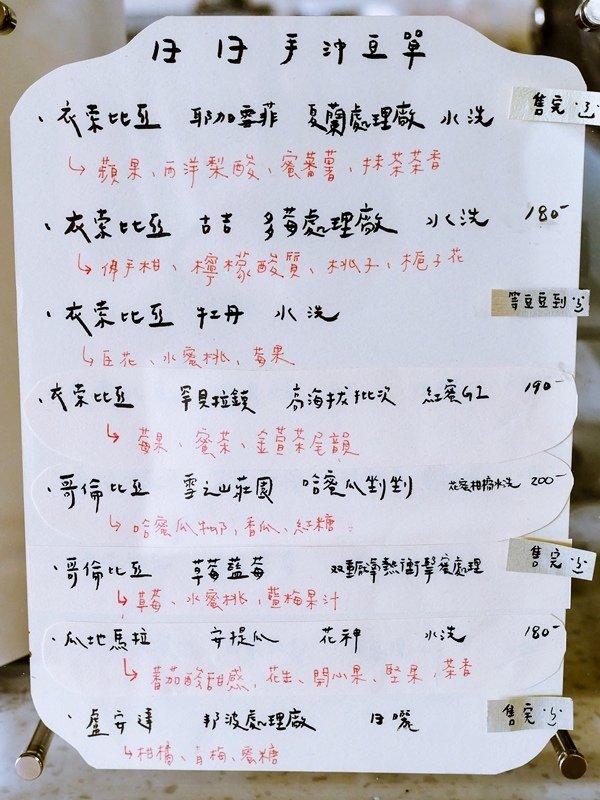 日日手沖豆單
· 衣索比亞 耶加雪菲 夏蘭處理廠 水洗 售完
↳ 蘋果、西洋梨酸、蜜蕃薯、抹茶茶香
· 衣索比亞 古吉 多莓處理廠 水洗 180-
↳ 佛手柑、檸檬酸質、桃子、梔子花
· 衣索比亞 牡丹 水洗 等豆豆到
↳ 白花、水蜜桃、莓果
· 衣索比亞 罕貝拉鎮 高海拔批次 紅蜜G1 190-
↳ 莓果、蜜茶、金萱茶尾韻
· 哥倫比亞 雪之山莊園 哈蜜瓜剉剉 花蜜柑橘水洗 200-
↳ 哈蜜瓜牛奶、香瓜、紅糖
· 哥倫比亞 草莓藍莓 双重厭氧熱衝擊蜜處理 售完
↳ 草莓、水蜜桃、藍莓果汁
· 瓜地馬拉 安提瓜 花神 水洗 180-
↳ 蕃茄酸甜感、花生、開心果、堅果、茶香
· 盧安達 邦波處理廠 日曬 售完
↳ 柑橘、青梅、蜜糖